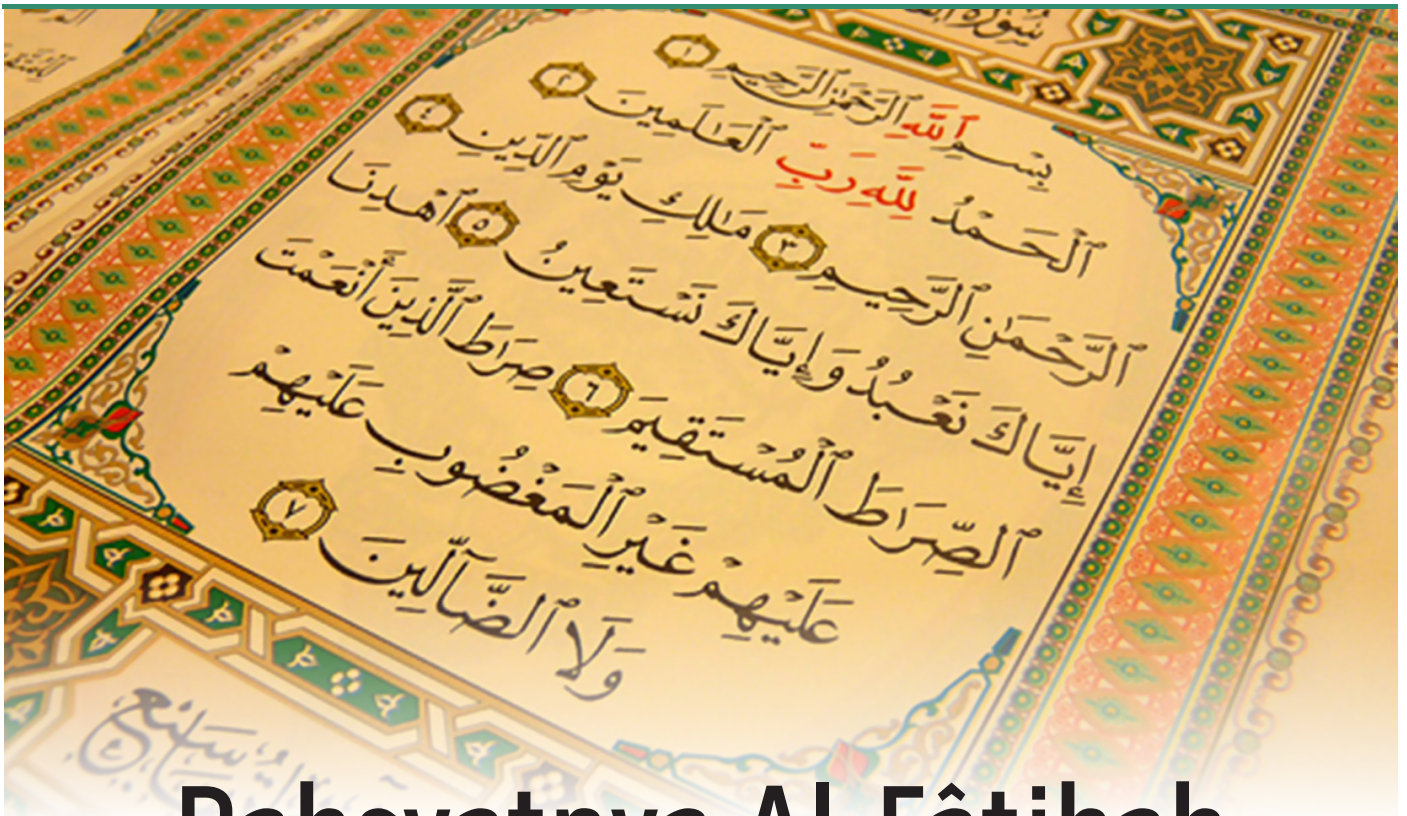 سُورَةُ
بِسْمِ ٱللَّهِ ٱلرَّحْمَٰنِ ٱلرَّحِيمِ ١
ٱلْحَمْدُ لِلَّهِ رَبِّ ٱلْعَٰلَمِينَ ٢
ٱلرَّحْمَٰنِ ٱلرَّحِيمِ ٣ مَٰلِكِ يَوْمِ ٱلدِّينِ ٤
إِيَّاكَ نَعْبُدُ وَإِيَّاكَ نَسْتَعِينُ ٥ ٱهْدِنَا
ٱلصِّرَاطَ ٱلْمُسْتَقِيمَ ٦ صِرَاطَ ٱلَّذِينَ أَنْعَمْتَ
عَلَيْهِمْ غَيْرِ ٱلْمَغْضُوبِ عَلَيْهِمْ
وَلَا ٱلضَّآلِّينَ ٧
Dahsyatnya Al-Fâtihah